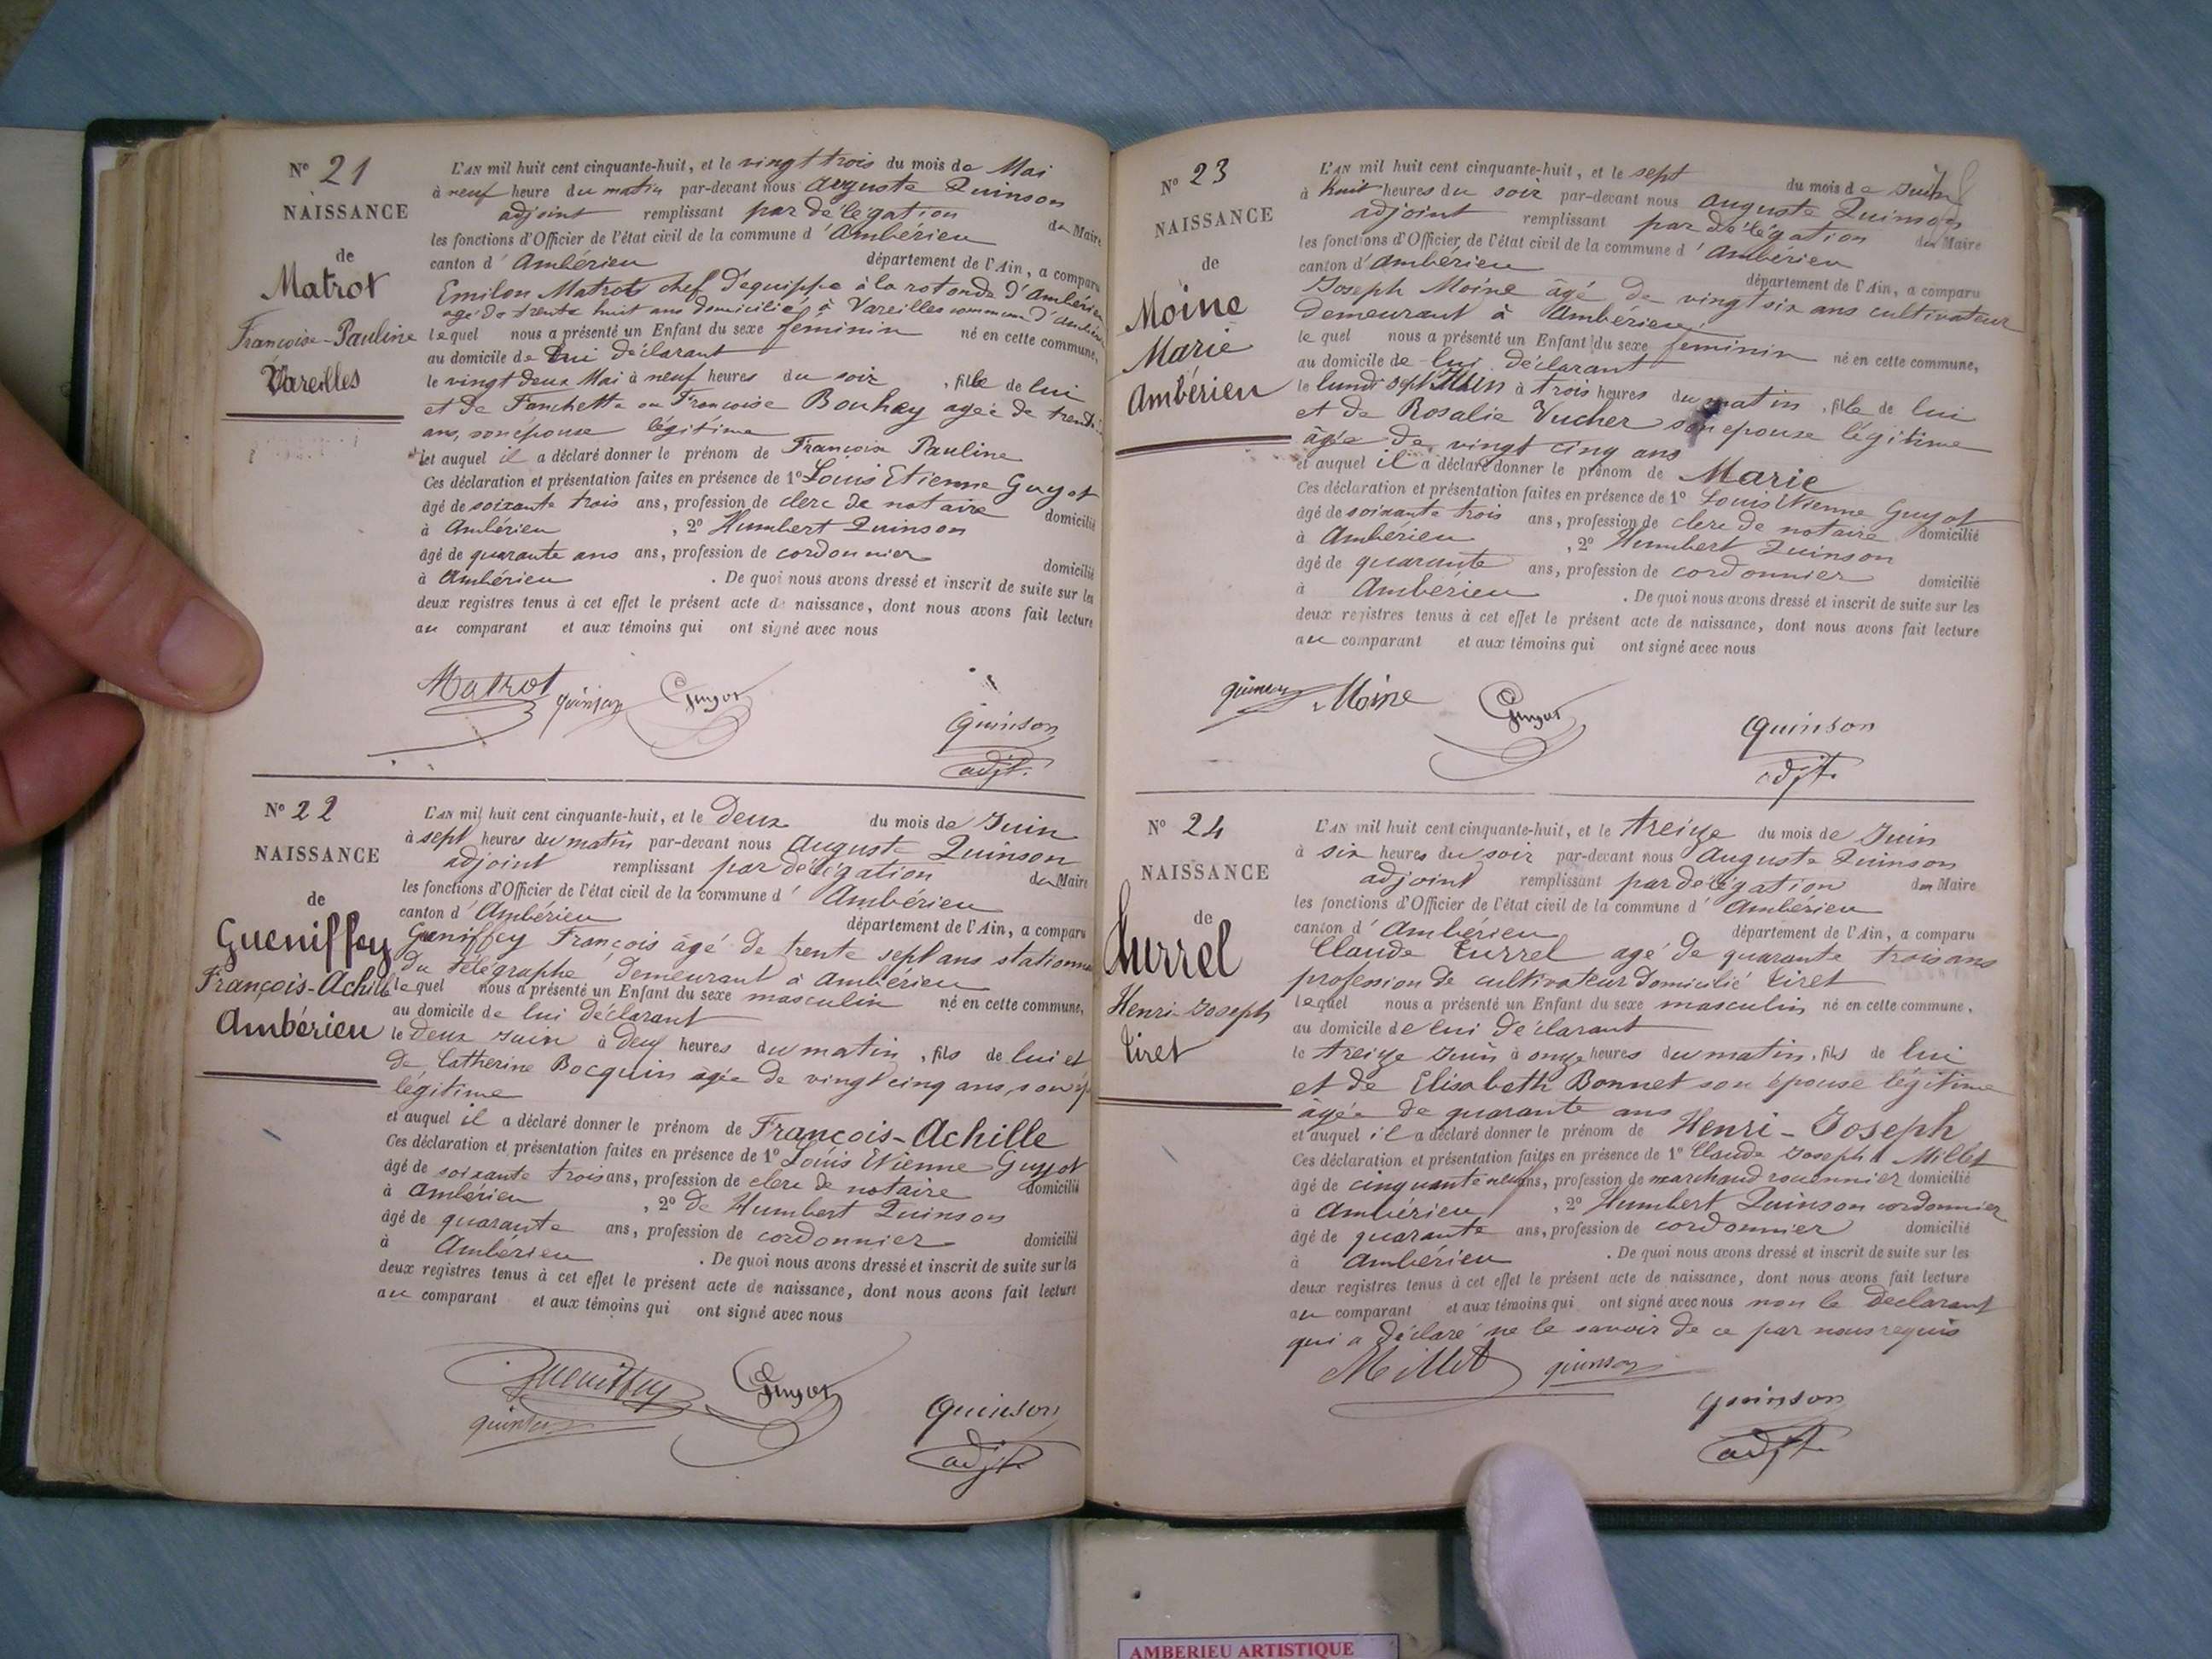 N° 21
NAISSANCE
de
Matrot
Françoise-Pauline
Vareilles
L'AN mil huit cent cinquante-huit, et le vingt trois du mois de Mai
à neuf heure du matin par-devant nous Auguste Quinson
adjoint remplissant par délégation du Maire
les fonctions d'Officier de l'état civil de la commune d'Ambérieu
canton d'Ambérieu département de l'Ain, a comparu
Emilon Matrot chef d'equippe à la rotonde d'Ambérieu
agé de trente huit ans domicilié à Vareilles commune d'Ambérieu
lequel nous a présenté un Enfant du sexe féminin né en cette commune,
au domicile de lui déclarant
le vingt deux Mai à neuf heures du soir, fille de lui
et de Fanchette ou Françoise Bouhey agée de trente
ans, son épouse légitime
et auquel il a déclaré donner le prénom de Françoise Pauline
Ces déclaration et présentation faites en présence de 1° Louis Etienne Guyot
âgé de soixante trois ans, profession de clerc de notaire domicilié
à Ambérieu, 2° Humbert Quinson
âgé de quarante ans ans, profession de cordonnier domicilié
à Ambérieu. De quoi nous avons dressé et inscrit de suite sur les
deux registres tenus à cet effet le présent acte de naissance, dont nous avons fait lecture
au comparant et aux témoins qui ont signé avec nous
Matrot quinson Guyot
Quinson
adjt.
N° 22
NAISSANCE
de
Gueniffey
François-Achille
Ambérieu
L'AN mil huit cent cinquante-huit, et le deux du mois de Juin
à sept heures du matin par-devant nous Auguste Quinson
adjoint remplissant par délégation du Maire
les fonctions d'Officier de l'état civil de la commune d'Ambérieu
canton d'Ambérieu département de l'Ain, a comparu
Gueniffey François âgé de trente sept ans stationnaire
du télégraphe demeurant à Ambérieu
lequel nous a présenté un Enfant du sexe masculin né en cette commune,
au domicile de lui déclarant
le deux Juin à deux heures du matin, fils de lui et
de Catherine Bocquin agée de vingt cinq ans, son
légitime
et auquel il a déclaré donner le prénom de François-Achille
Ces déclaration et présentation faites en présence de 1° Louis Etienne Guyot
âgé de soixante trois ans, profession de clerc de notaire domicilié
à Ambérieu, 2° de Humbert Quinson
âgé de quarante ans, profession de cordonnier domicilié
à Ambérieu. De quoi nous avons dressé et inscrit de suite sur les
deux registres tenus à cet effet le présent acte de naissance, dont nous avons fait lecture
au comparant et aux témoins qui ont signé avec nous
Gueniffey Guyot
quinson
Quinson
adjt.
N° 23
NAISSANCE
de
Moine
Marie
Ambérieu
L'AN mil huit cent cinquante-huit, et le sept du mois de Juin
à huit heures du soir par-devant nous Auguste Quinson
adjoint remplissant par délégation du Maire
les fonctions d'Officier de l'état civil de la commune d'Ambérieu
canton d'Ambérieu département de l'Ain, a comparu
Joseph Moine âgé de vingt six ans cultivateur
demeurant à Ambérieu
lequel nous a présenté un Enfant du sexe féminin né en cette commune,
au domicile de lui déclarant
le lundi sept Juin à trois heures du matin, fille de lui
et de Rosalie Vucher son épouse légitime
âgée de vingt cinq ans
et auquel il a déclaré donner le prénom de Marie
Ces déclaration et présentation faites en présence de 1° Louis Etienne Guyot
âgé de soixante trois ans, profession de clerc de notaire domicilié
à Ambérieu, 2° Humbert Quinson
âgé de quarante ans, profession de cordonnier domicilié
à Ambérieu. De quoi nous avons dressé et inscrit de suite sur les
deux registres tenus à cet effet le présent acte de naissance, dont nous avons fait lecture
au comparant et aux témoins qui ont signé avec nous
quinson Moine Guyot
Quinson
adjt.
N° 24
NAISSANCE
de
Turrel
Henri-Joseph
Tiret
L'AN mil huit cent cinquante-huit, et le treize du mois de Juin
à six heures du soir par-devant nous Auguste Quinson
adjoint remplissant par délégation du Maire
les fonctions d'Officier de l'état civil de la commune d'Ambérieu
canton d'Ambérieu département de l'Ain, a comparu
Claude Turrel agé de quarante trois ans
profession de cultivateur domicilié Tiret
lequel nous a présenté un Enfant du sexe masculin né en cette commune,
au domicile de lui déclarant
le treize Juin à onze heures du matin, fils de lui
et de Elisabeth Bonnet son épouse légitime
âgée de quarante ans
et auquel il a déclaré donner le prénom de Henri-Joseph
Ces déclaration et présentation faites en présence de 1° Claude Joseph Millet
âgé de cinquante neuf ans, profession de marchand rouennier domicilié
à Ambérieu, 2° Humbert Quinson cordonnier
âgé de quarante ans, profession de cordonnier domicilié
à Ambérieu. De quoi nous avons dressé et inscrit de suite sur les
deux registres tenus à cet effet le présent acte de naissance, dont nous avons fait lecture
au comparant et aux témoins qui ont signé avec nous non le déclarant
qui a déclaré ne le savoir de ce par nous requis
Millet quinson
Quinson
adjt.
AMBERIEU ARTISTIQUE